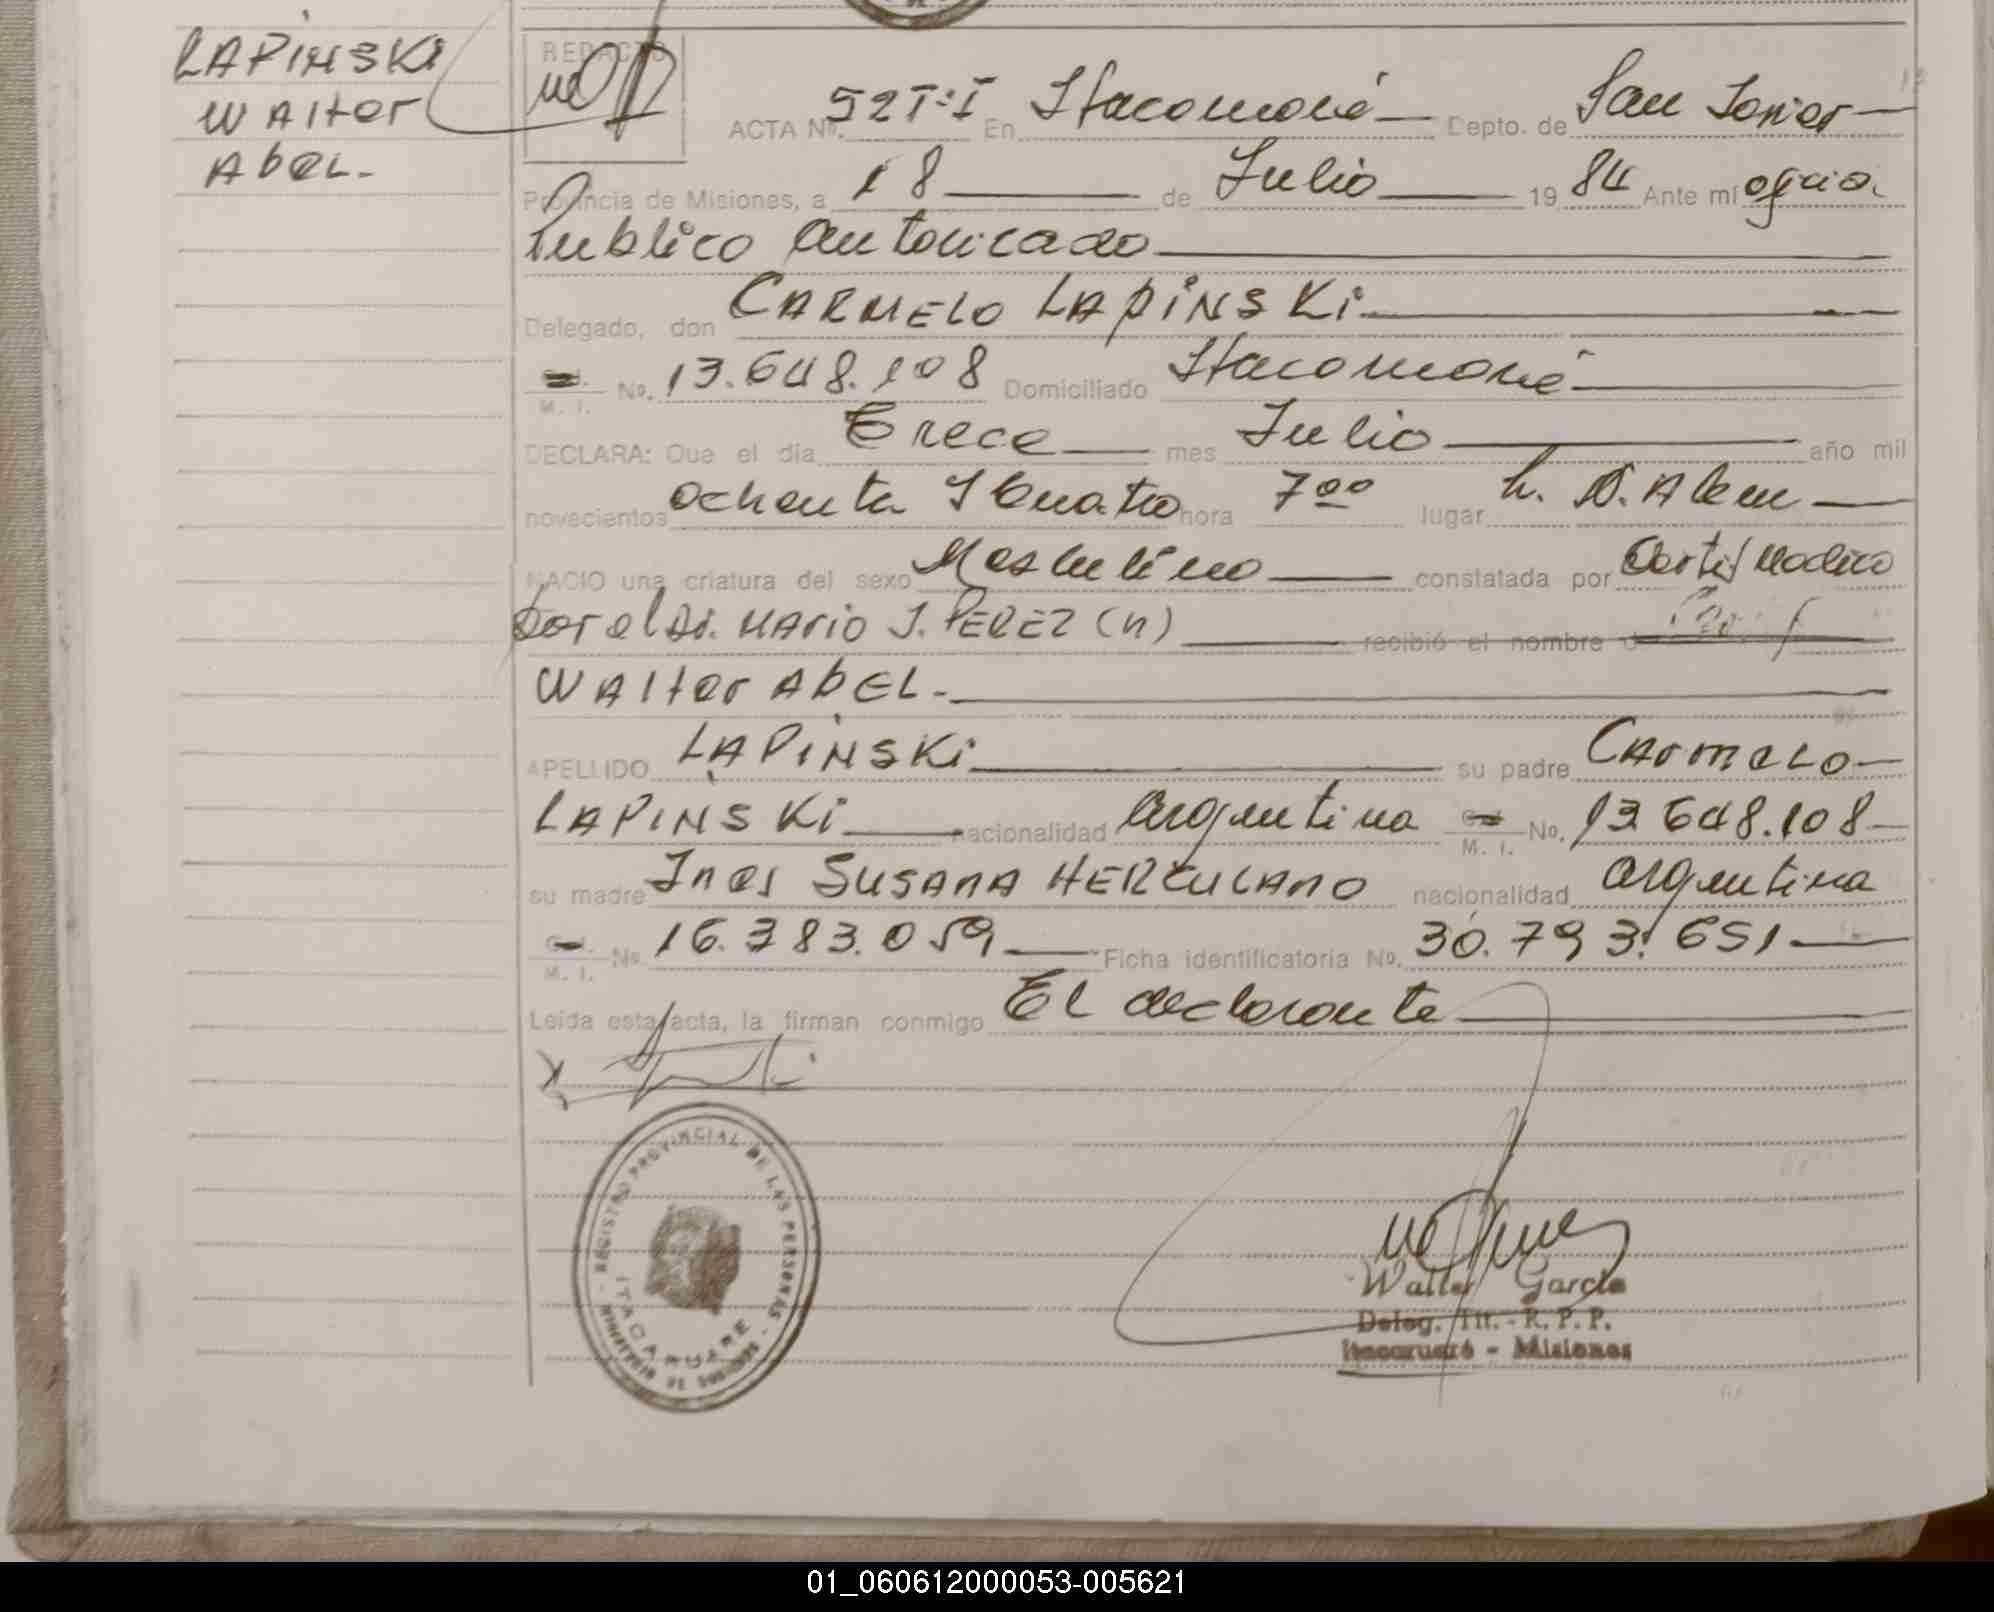 LAPINSKI
Walter
Abel.-
REDACTO
ACTA Nº. 52 T:I En Itacaruaré Depto. de San Javier
Provincia de Misiones, a 18 de Julio 19 84 Ante mi oficial
Publico Autorizado
Delegado, don CARMELO LAPINSKI
C. I. M. I. No. 13.648.108 Domiciliado Itacaruaré
DECLARA: Que el dia Trece mes Julio año mil
novecientos ochenta Y Cuatro hora 7 00 lugar L. N. Alem
NACIO una criatura del sexo Masculino constatada por Certif Medico
por el Dr. Mario J. PEREZ (n) recibió el nombre de
Walter Abel.-
APELLIDO LAPINSKI su padre Carmelo
LAPINSKI nacionalidad Argentina C. I. M. I. No. 13.648.108
su madre Ines Susana HERCULANO nacionalidad argentina
C. I. M. I. No. 16.383.059 Ficha identificatoria No. 30.793.651
Leida esta acta, la firman conmigo El declarante
X
REGISTRO PROVINCIAL DE LAS PERSONAS - MINISTERIO DE GOBIERNO -
ITACARUARE
Walter Garcia
Deleg. Tit. - R. P. P.
Itacaruaré - Misiones
01_060612000053-005621